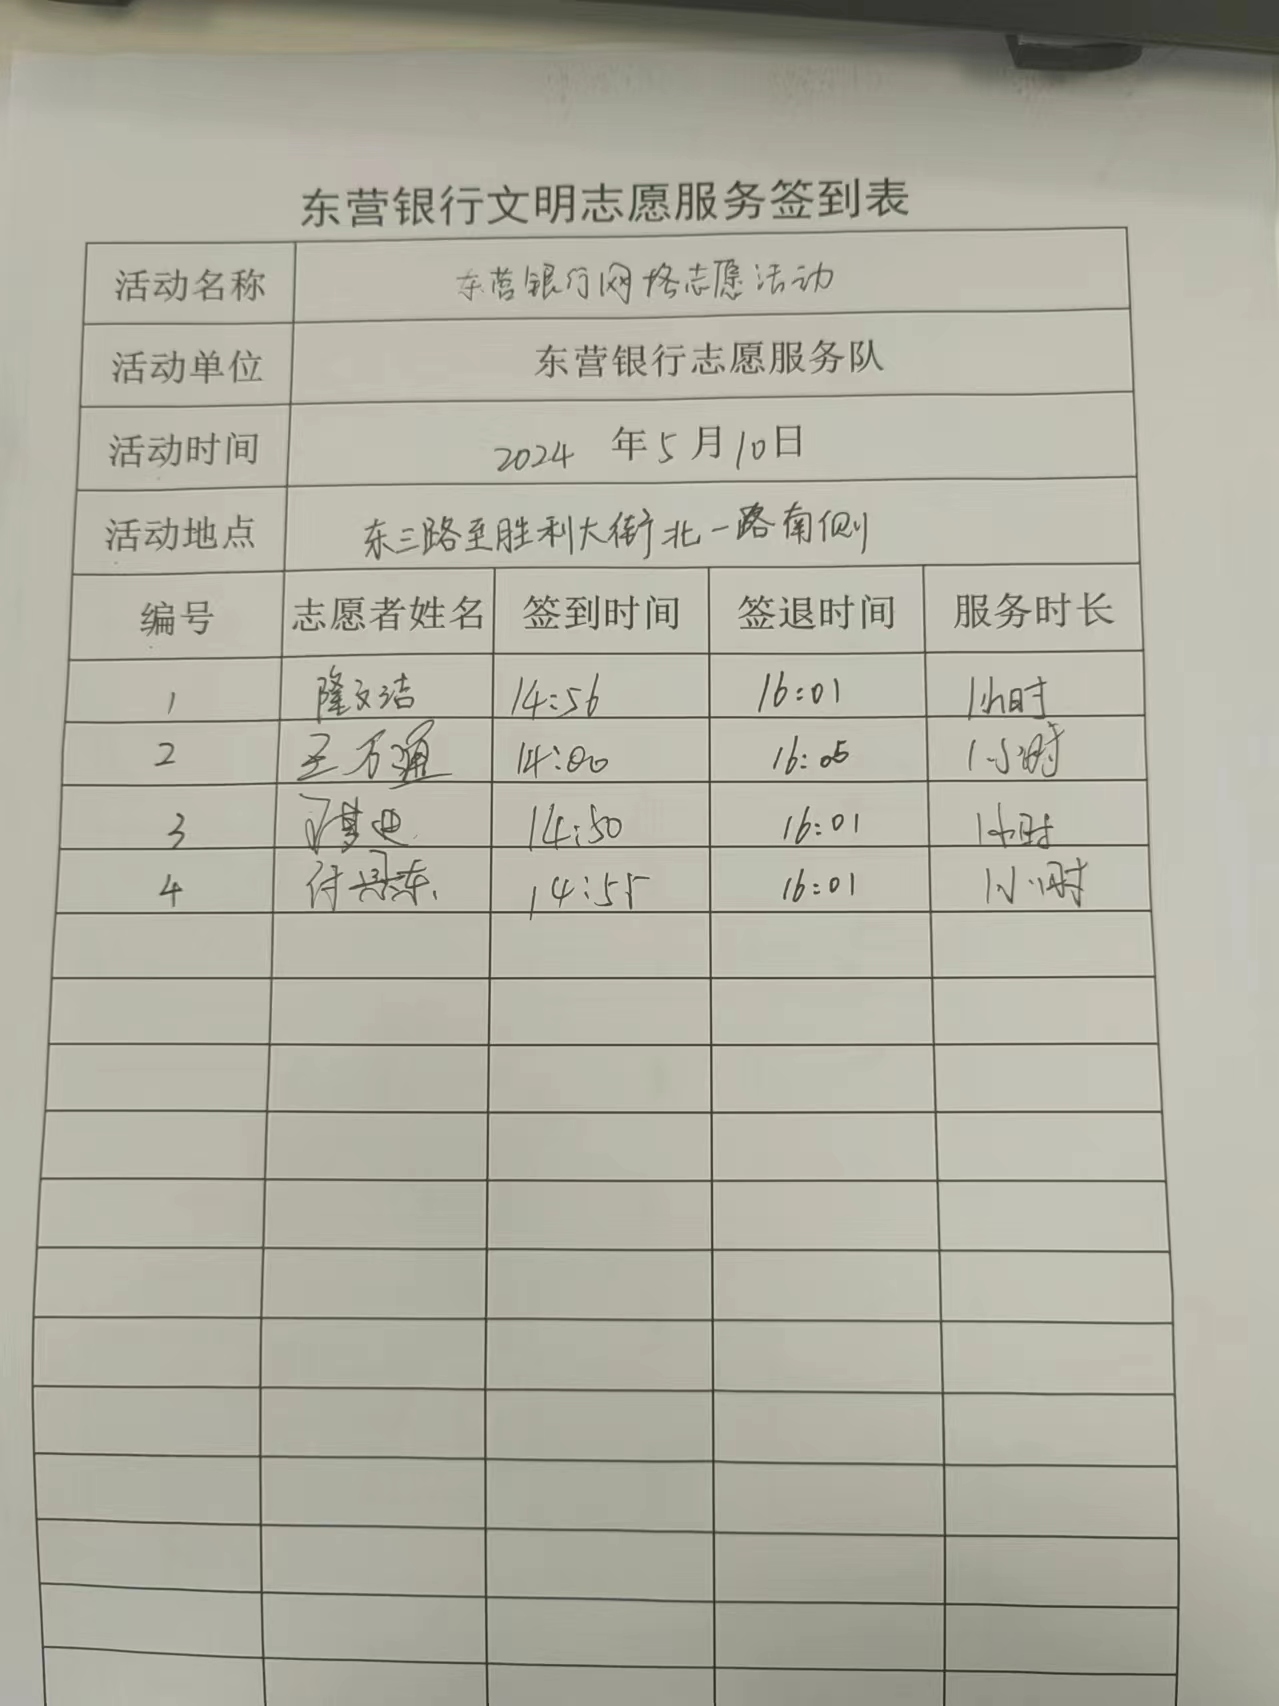 东营银行文明志愿服务签到表
活动名称 东营银行网格志愿活动
活动单位 东营银行志愿服务队
活动时间 2024 年 5 月 10 日
活动地点 东三路至胜利大街北一路南侧
编号 志愿者姓名 签到时间 签退时间 服务时长
1 隆文洁 14:56 16:01 1小时
2 王万通 14:00 16:05 1小时
3 14:50 16:01 1小时
4 付丹东 14:55 16:01 1小时